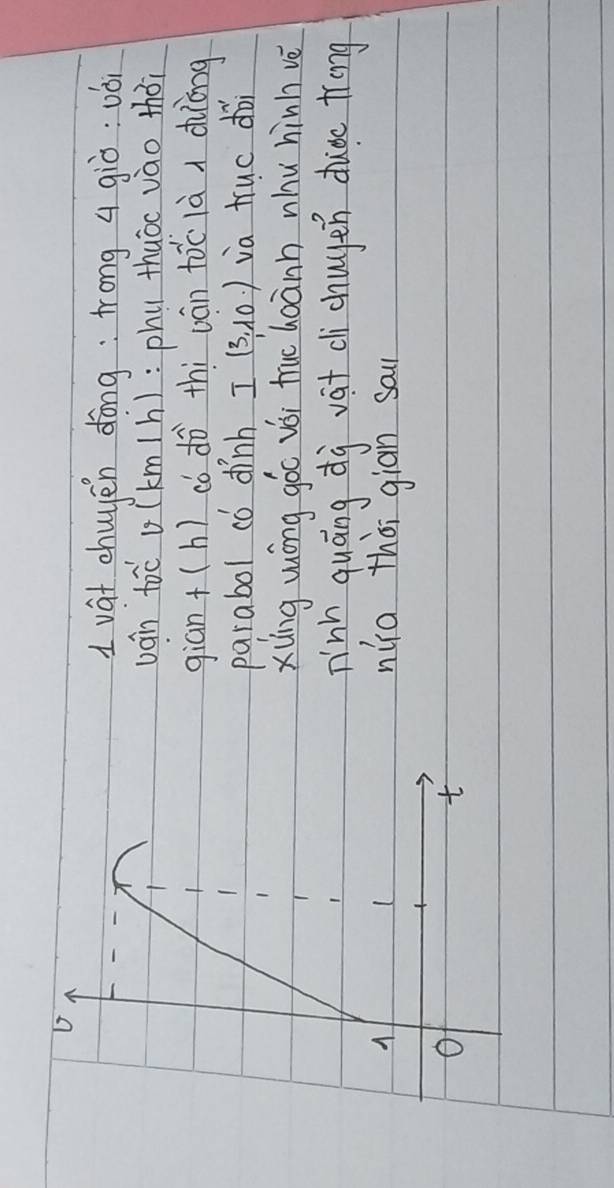 1 vật chuyển động : trong 4 giờ : với
vận tốc v (km/h) : phụ thuộc vào thời
gian t (h) có đồ thị vận tốc là 1 đường
parabol có đỉnh I (3,10.) và trục đối
xứng vuông góc với trục hoành như hình vẽ
Tính quãng đg vật di chuyển được trong
nửa thời gian sau
v
1
0
t